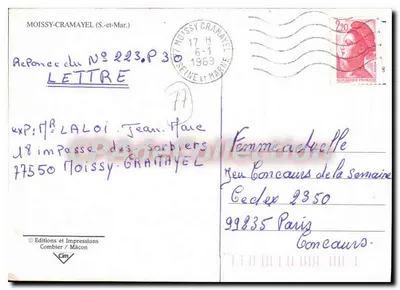 MOISSY-CRAMAYEL (S.-et-Mar.)
Reponse du N° 223.P30
LETTRE
77 MOISSY CRAMAYEL
17 H
6-1
1989
SEINE et MARNE
2,20
77
exp: Mr LALOI. Jean. Marc
18 impasse des sorbiers
77550 MOISSY-CRAMAYEL
Femme actuelle
Jeu Concours de la Semaine
Cedex 2350
99835 Paris
Concours.
© Editions et Impressions
Combier / Mâcon
Cim